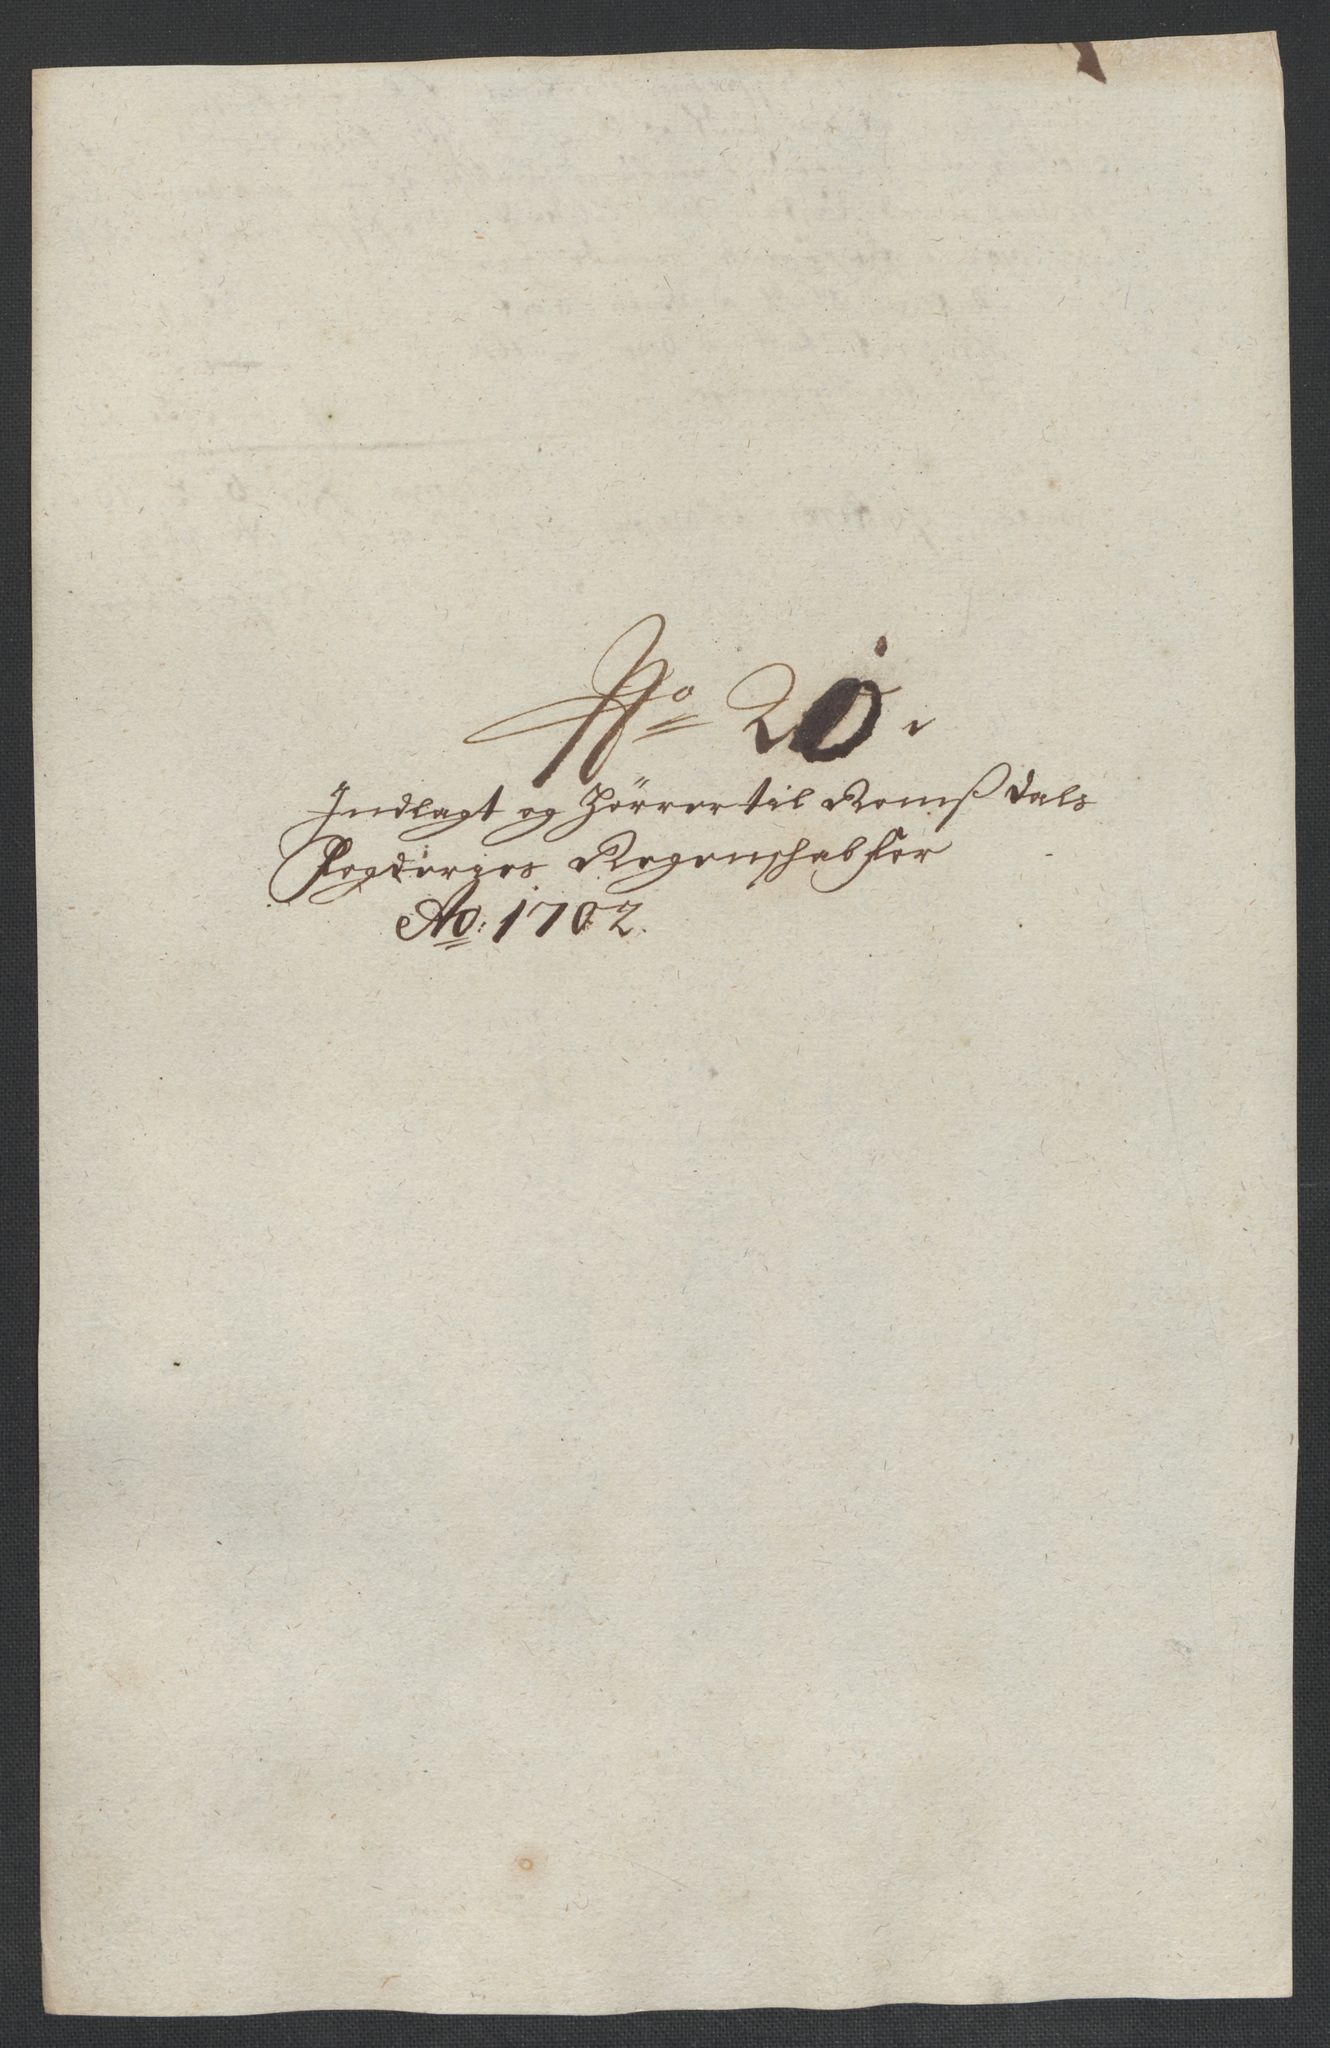 No 20.
Indlagt og Hörrer til Romßdals
Fogderies Regenschab for
Ao: 1702.